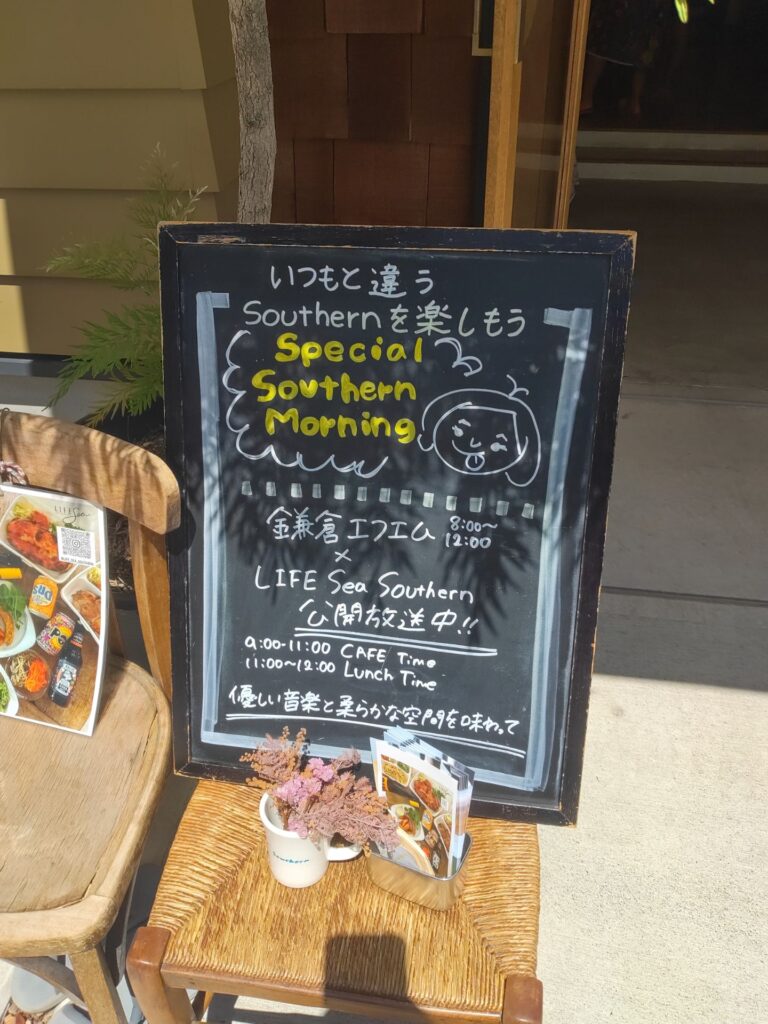 いつもと違う
Southernを楽しもう
Special
Southern
Morning
鎌倉エフエム 8:00〜
12:00
×
LIFE Sea Southern
公開放送中!!
9:00-11:00 CAFE Time
11:00〜12:00 Lunch Time
優しい音楽と柔らかな空間を味わって
LIFE Sea
Southern